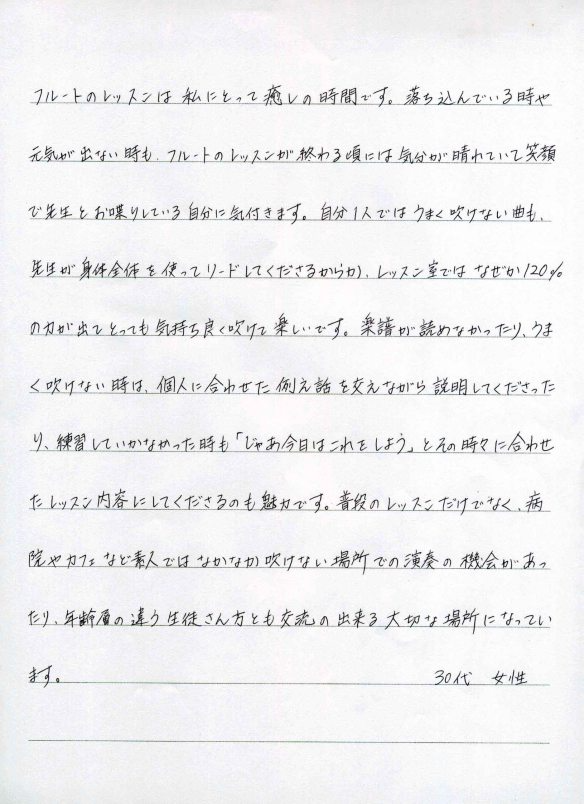 フルートのレッスンは私にとって癒しの時間です。落ち込んでいる時や
元気が出ない時も、フルートのレッスンが終わる頃には気分が晴れていて笑顔
で先生とお喋りしている自分に気付きます。自分1人ではうまく吹けない曲も、
先生が身体全体を使ってリードしてくださるからか、レッスン室ではなぜか120%
の力が出てとっても気持ち良く吹けて楽しいです。楽譜が読めなかったり、うま
く吹けない時は、個人に合わせた例え話を交えながら説明してくださった
り、練習していかなかった時も「じゃあ今日はこれをしよう」とその時々に合わせ
たレッスン内容にしてくださるのも魅力です。普段のレッスンだけでなく、病
院やカフェなど素人ではなかなか吹けない場所での演奏の機会があっ
たり、年齢層の違う生徒さん方とも交流の出来る大切な場所になってい
ます。
30代 女性